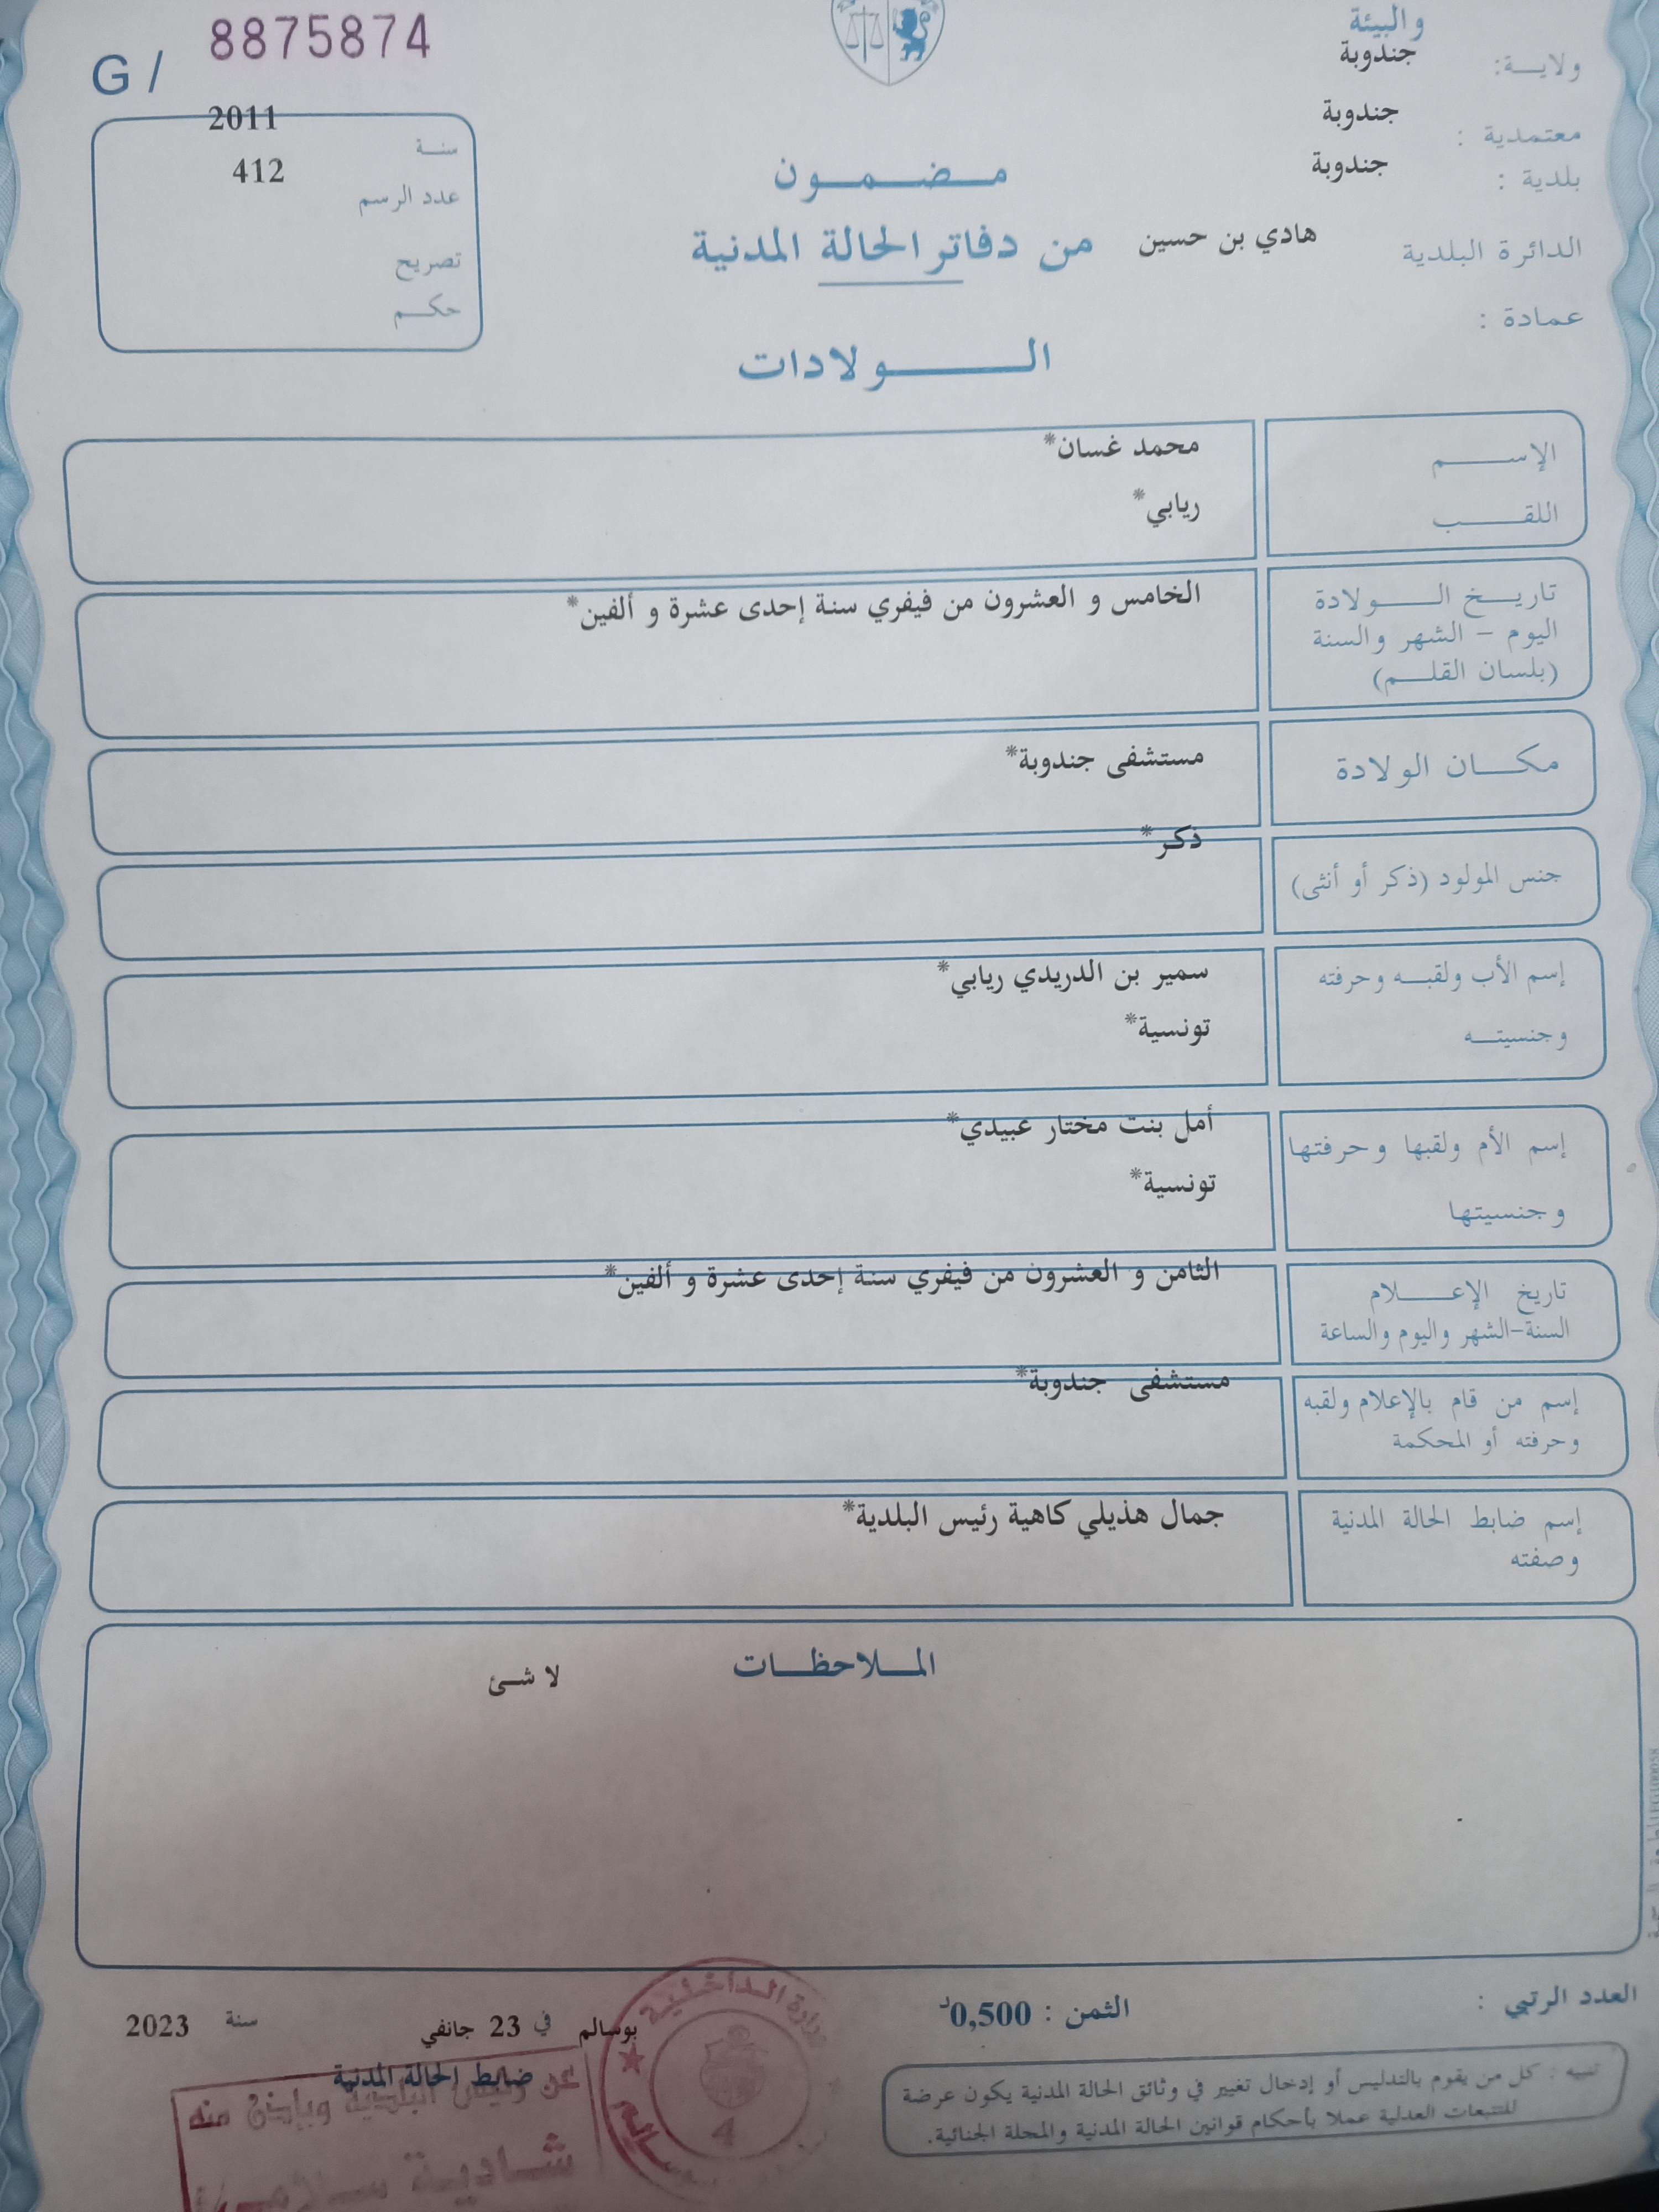 والبيئة
8875874
G /
ولايـــة: جندوبة
معتمدية : جندوبة
بلدية : جندوبة
الدائرة البلدية هادي بن حسين
عمادة :
سنــة 2011
عدد الرسم 412
تصريح
حكـــم
مــضــمــون
من دفاتر الحالة المدنية
الــــولادات
الإســـــم محمد غسان*
اللقـــــب ريابي*
تاريــخ الــــولادة الخامس و العشرون من فيفري سنة إحدى عشرة و ألفين*
اليوم - الشهر والسنة
(بلسان القلــم)
مكــان الولادة مستشفى جندوبة*
جنس المولود (ذكر أو أنثى) ذكر*
إسم الأب ولقبــه وحرفته سمير بن الدريدي ريابي*
وجنسيتــه تونسية*
إسم الأم ولقبها وحرفتها أمل بنت مختار عبيدي*
وجنسيتها تونسية*
تاريخ الإعــــلام الثامن و العشرون من فيفري سنة إحدى عشرة و ألفين*
السنة-الشهر واليوم والساعة
إسم من قام بالإعلام ولقبه مستشفى جندوبة*
وحرفته أو المحكمة
إسم ضابط الحالة المدنية جمال هذيلي كاهية رئيس البلدية*
وصفته
المــلاحظــات
لا شئ
العدد الرتبي :
الثمن : 0,500د
بوسالم في 23 جانفي سنة 2023
ضابط الحالة المدنية
عن رئيس البلدية وبإذن منه
شــاديــة
الداخلية
4
تنبيه : كل من يقوم بالتدليس أو إدخال تغيير في وثائق الحالة المدنية يكون عرضة
للتتبعات العدلية عملا بأحكام قوانين الحالة المدنية والمجلة الجنائية.